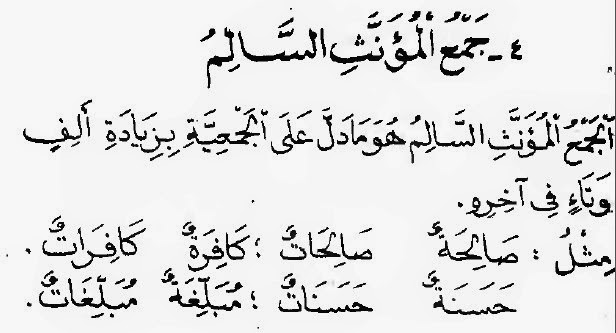 ٤ـ جَمْعُ الْمُؤَنَّثِ السَّالِمُ
اَلْجَمْعُ الْمُؤَنَّثِ السَّالِمُ هُوَ مَادَلَّ عَلَى الْجَمْعِيَّةِ بِزِيَادَةِ أَلِفٍ
وَتَاءٍ فِى آخِرِهِ.
مِثْلُ : صَالِحَةٌ صَالِحَاتٌ ؛ كَافِرَةٌ كَافِرَاتٌ .
حَسَنَةٌ حَسَنَاتٌ ؛ مُبَلِّغَةٌ مُبَلِّغَاتٌ.